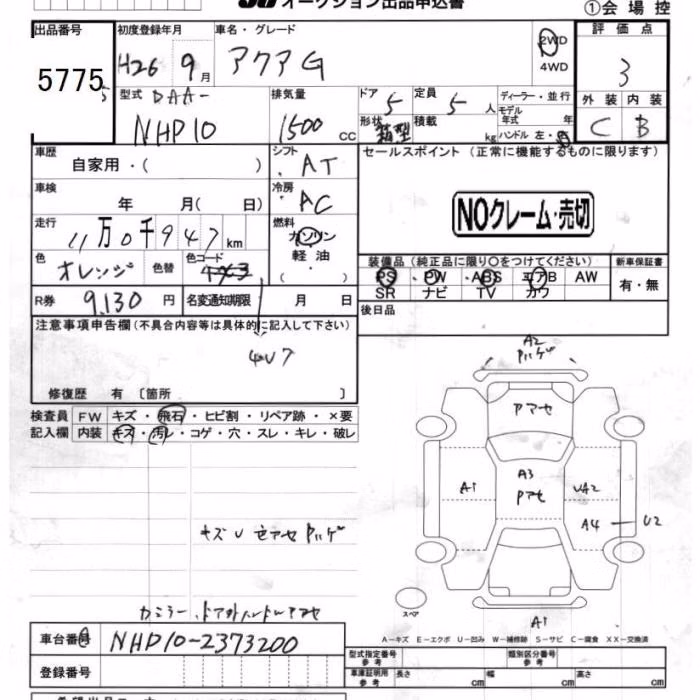 オークション出品申込書
①会場控
出品番号 初度登録年月 車名・グレード 評価点
5775 H26 9月 アクアG 2WD 4WD 3
型式 DAA- NHP10 排気量 1500 cc ドア 5 定員 5人 ディーラー・並行
モデル年式 年 外装 内装
形状 箱型 積載 kg ハンドル 左・右 C B
車歴 自家用・( ) シフト AT セールスポイント (正常に機能するものに限ります)
車検 年 月( 日) 冷房 AC
NOクレーム・売切
走行 11万0千947km 燃料 ガソリン
軽油
・( )
色 オレンジ 色替 色コード 装備品(純正品に限り○をつけてください) 新車保証書
PS・PW・ABS・エアB AW 有・無
R券 9,130円 名変通知期限 月 日 SR ナビ TV カワ
注意事項申告欄(不具合内容等は具体的に記入して下さい) 後日品
4V7
修復歴 有 [箇所 ]
検査員 FW キズ・飛石・ヒビ割・リペア跡・×要
記入欄 内装 キズ・汚レ・コゲ・穴・スレ・キレ・破レ
A2
Pハゲ
アマセ
A1 A3 UA2
Pアセ
A4 U2
キズU セアセ Pハゲ
スペア
A1
A-キズ E-エクボ U-凹み W-補修跡 S-サビ C-腐食 XX-交換済
車台番号 NHP10-2373200
登録番号
型式指定番号 参考 類別区分番号 参考
車庫証明用 参考 長さ cm 幅 cm 高さ cm